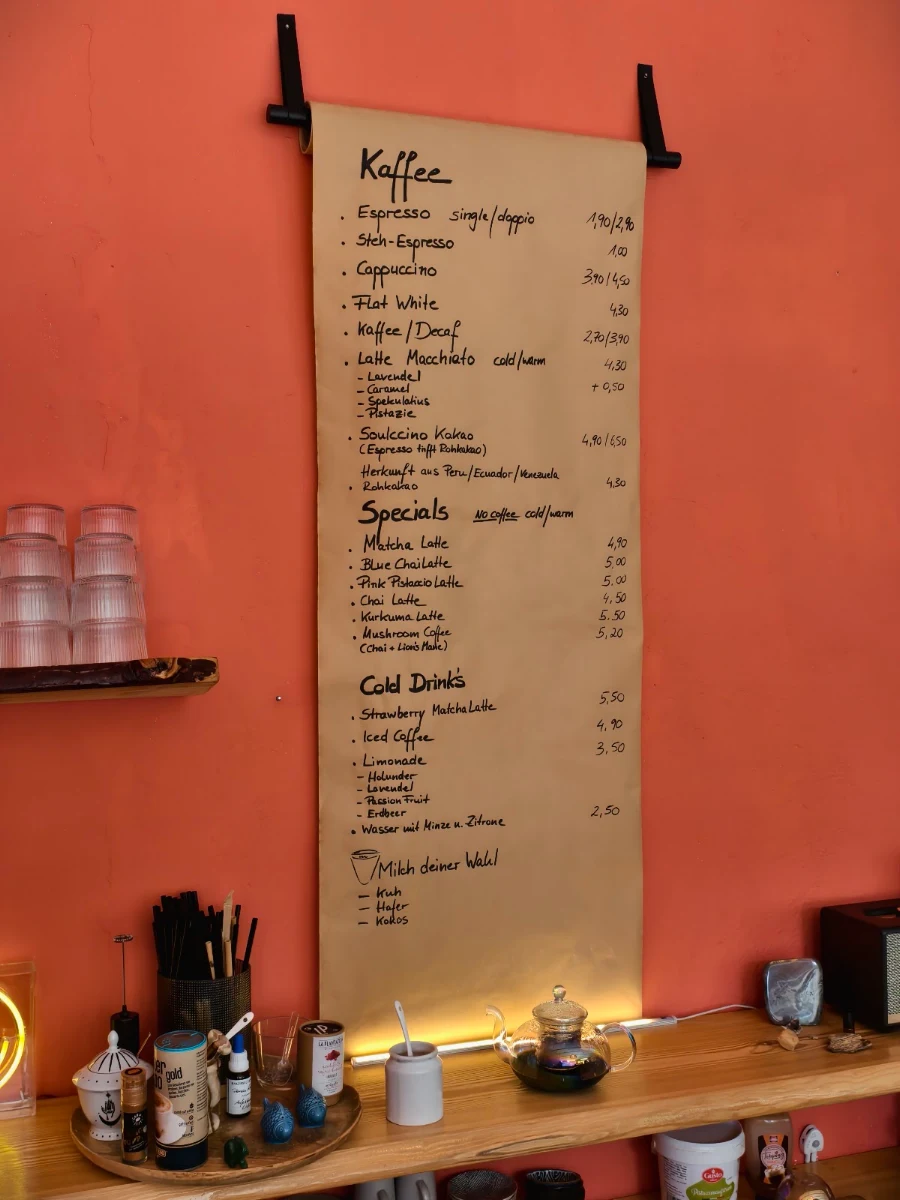 Kaffee
. Espresso single/doppio 1,90/2,90
. Steh-Espresso 1,00
. Cappuccino 3,90/4,50
. Flat White 4,30
. Kaffee/Decaf 2,70/3,90
. Latte Macchiato cold/warm 4,30
- Lavendel + 0,50
- Caramel
- Spekulatius
- Pistazie
. Soulccino Kakao 4,90/6,50
(Espresso trifft Rohkakao)
Herkunft aus Peru/Ecuador/Venezuela
. Rohkakao 4,30
Specials No coffee cold/warm
. Matcha Latte 4,90
. Blue Chai Latte 5,00
. Pink Pistaccio Latte 5.00
. Chai Latte 4,50
. Kurkuma Latte 5.50
. Mushroom Coffee 5,20
(Chai + Lion's Mane)
Cold Drink's
. Strawberry Matcha Latte 5,50
. Iced Coffee 4,90
. Limonade 3,50
- Holunder
- Lavendel
- Passion Fruit
- Erdbeer
. Wasser mit Minze u. Zitrone 2,50
Milch deiner Wahl
- Kuh
- Hafer
- Kokos
gold
Gusto